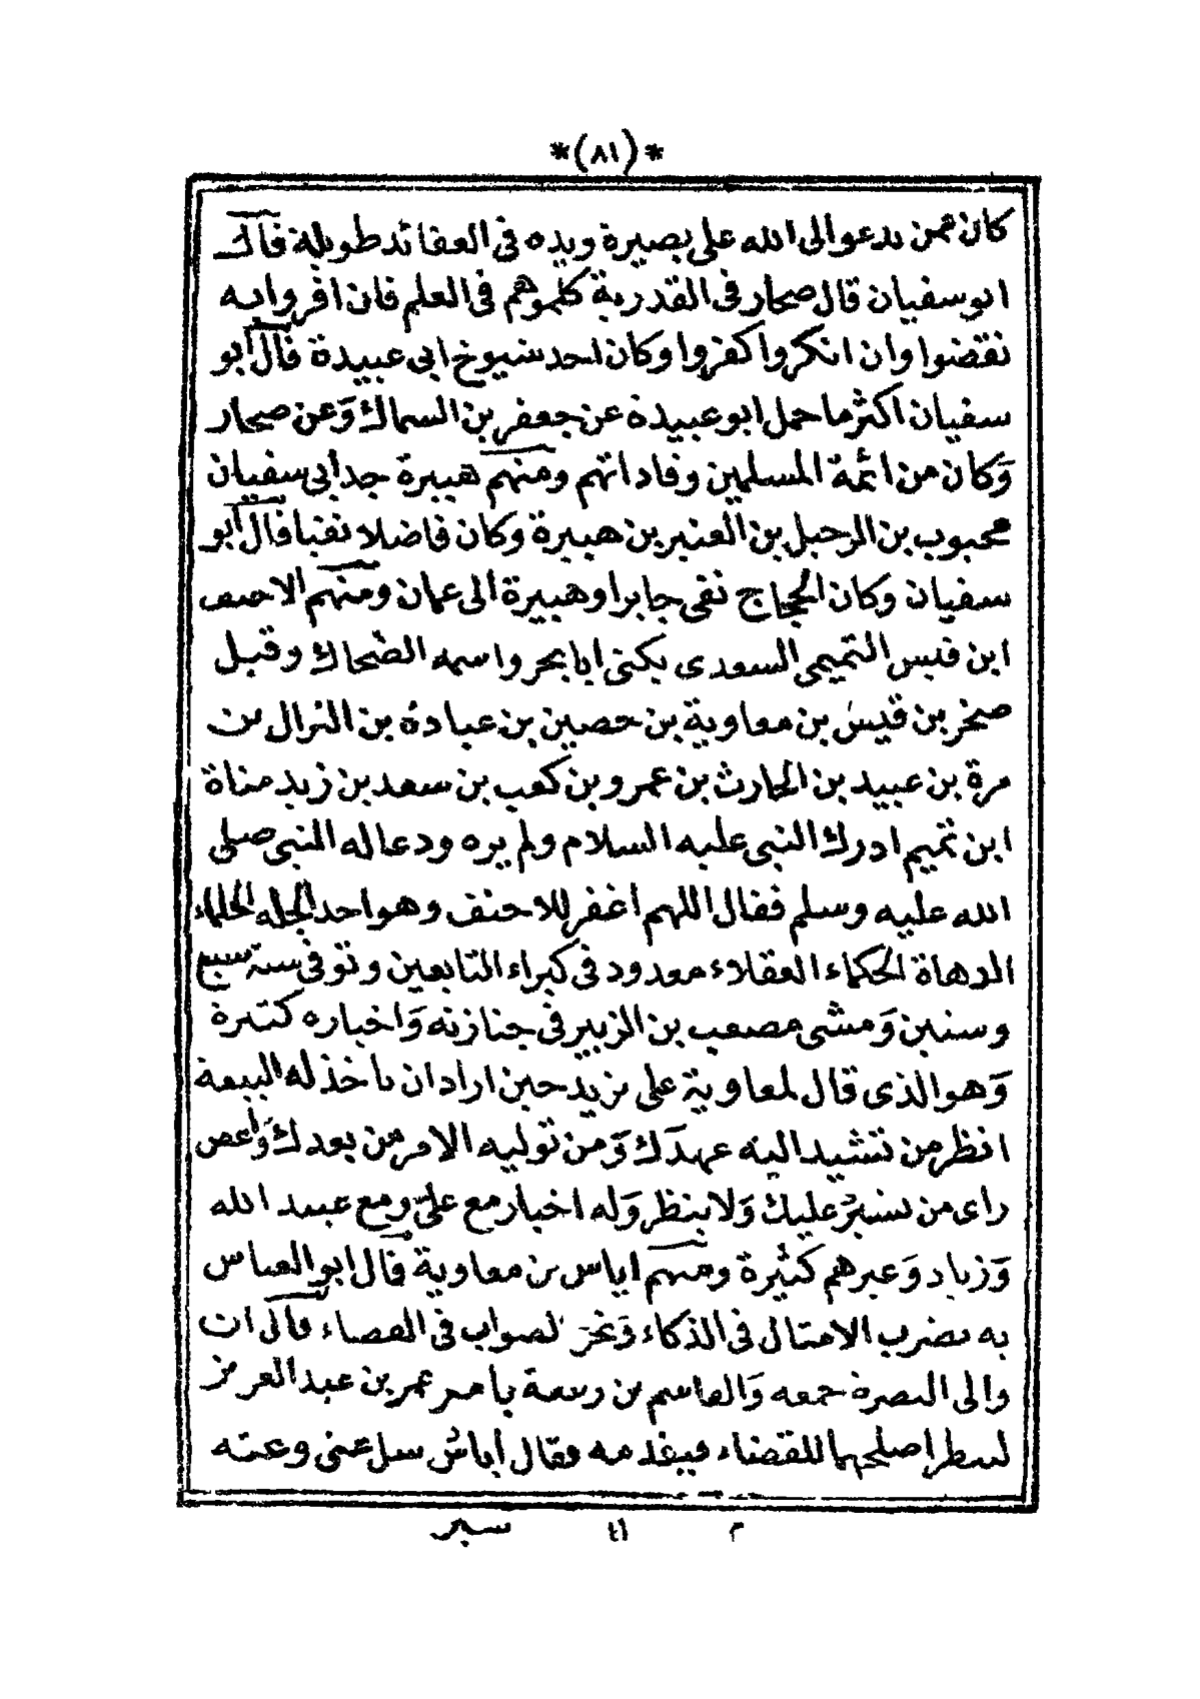 *(٨١)*
كان ممن يدعو الى الله على بصيرة ويده فى العقائد طويلة قال
ابو سفيان قال صحار فى القدرية كلموهم فى العلم فان اقروا به
نقضوا وان انكروا كفروا وكان احد شيوخ ابى عبيدة قال ابو
سفيان اكثر ما حمل ابو عبيدة عن جعفر بن السماك وعن صحار
وكان من ائمة المسلمين وقاداتهم ومنهم هبيرة جد ابى سفيان
محبوب بن الرحيل بن العنبر بن هبيرة وكان فاضلا تقيا قال ابو
سفيان وكان الحجاج نفى جابرا وهبيرة الى عمان ومنهم الاحنف
ابن قيس التميمى السعدى يكنى ابا بحر واسمه الضحاك وقيل
صخر بن قيس بن معاوية بن حصين بن عبادة بن النزال بن
مرة بن عبيد بن الحارث بن عمرو بن كعب بن سعد بن زيد مناة
ابن تميم ادرك النبى عليه السلام ولم يره ودعا له النبى صلى
الله عليه وسلم فقال اللهم اغفر للاحنف وهو احد الجلة الحلماء
الدهاة الحكماء العقلاء معدود فى كبراء التابعين وتوفى سنة سبع
وستين ومشى مصعب بن الزبير فى جنازته واخباره كثيرة
وهو الذى قال لمعاوية على يزيد حين اراد ان ياخذ له البيعة
انظر من تشيد اليه عهدك ومن توليه الامر من بعدك واعص
راى من يشير عليك ولا ينظر وله اخبار مع على ومع عبيد الله
وزياد وغيرهم كثيرة ومنهم اياس بن معاوية قال ابو العباس
به يضرب الامثال فى الذكاء وتحرّ الصواب فى القضاء قال ان
والى البصرة جمعه والقاسم بن ربيعة بامر عمر بن عبد العزيز
لينظر اصلحهما للقضاء فيقدمه فقال اياس سل عنى وعنه
م ١١ سير